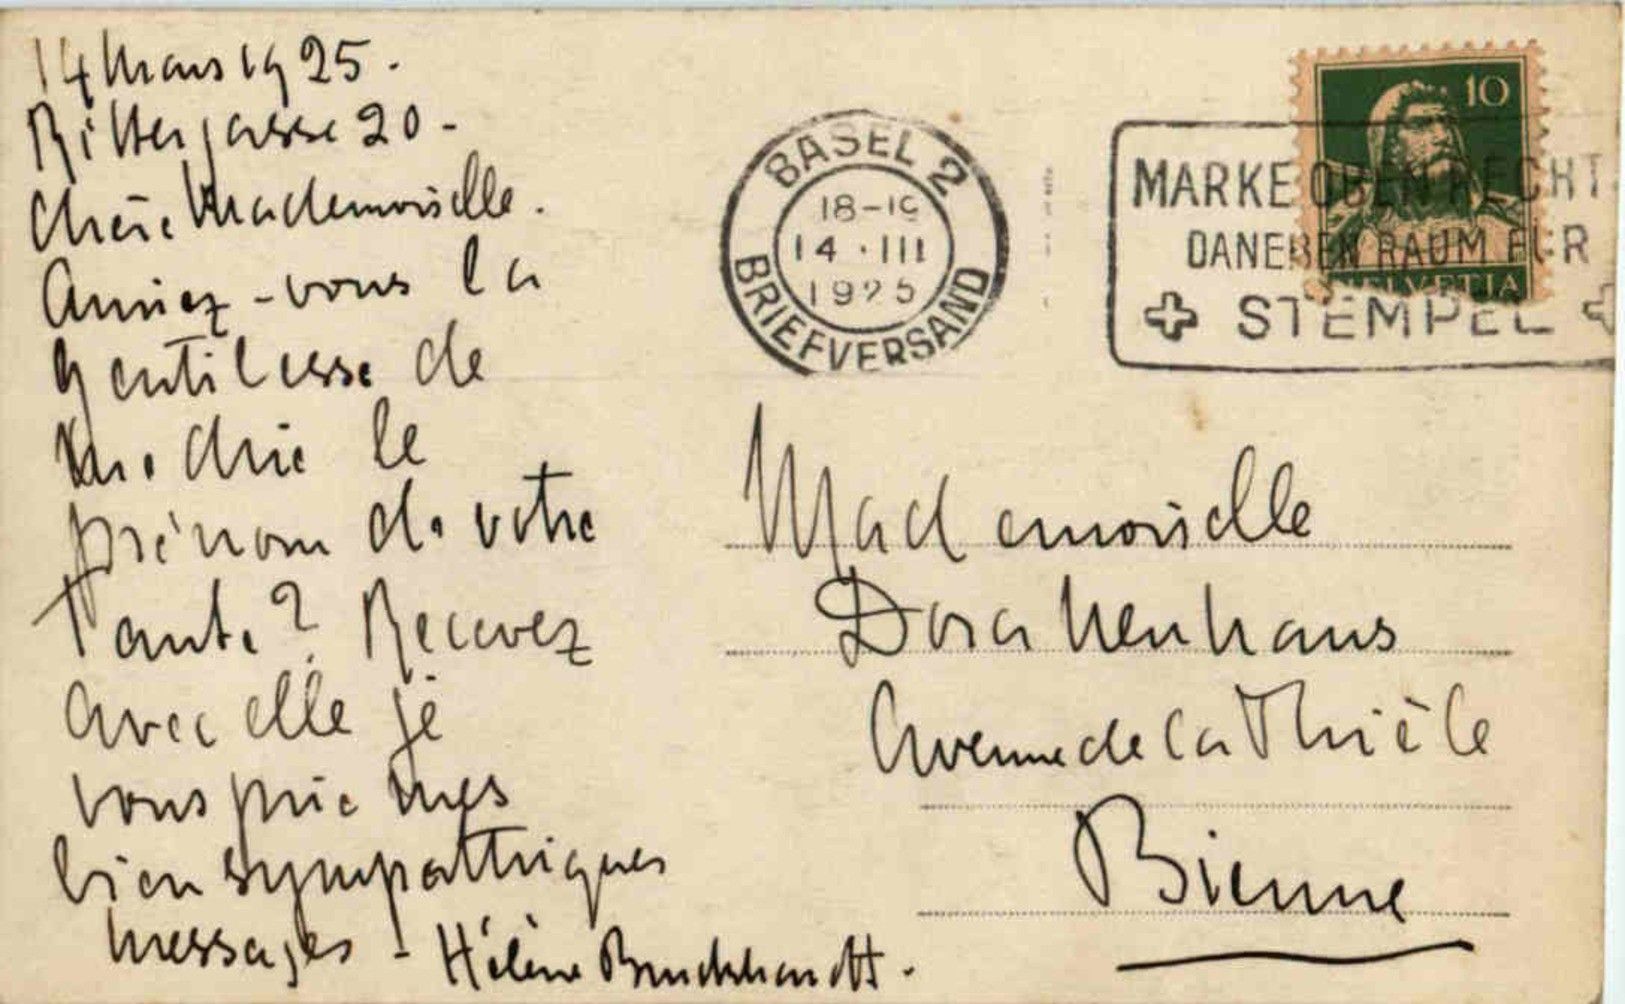 14 Mars 1925.
Rittergasse 20-
Chère Mademoiselle.
Auriez-vous la
gentilesse de
me dire le
prénom de votre
Tante? Recevez
avec elle je
vous prie mes
bien sympathiques
messages - Hélène Burckhardt.
BASEL 2
18-19
14.III
1925
BRIEFVERSAND
10
MARKE OBEN RECHT
DANEBEN RAUM FÜR
STEMPEL
HELVETIA
Mademoiselle
Dora Neuhaus
Avenue de la Thièle
Bienne